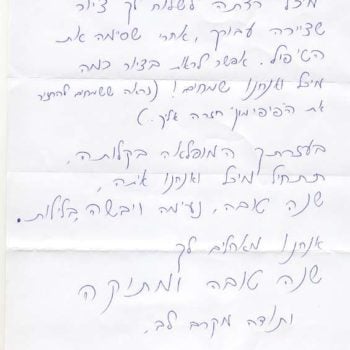 מיכל רצתה לשלוח לך ציור
שציירה עבורך, אחרי שסיימה את
הטיפול. אפשר לראות בציור כמה
מיכל ואנחנו שמחים! (נראה ששמחים להחזיר
את ה"פיפימון" חזרה אליך..)
בעזרתך המופלאה בקלות,
תתחיל מיכל ואנחנו איתה,
שנה טובה, נעימה ויבשה, בלילות.
אנחנו מאחלים לך
שנה טובה ומתוקה
ותודה מקרב לב,